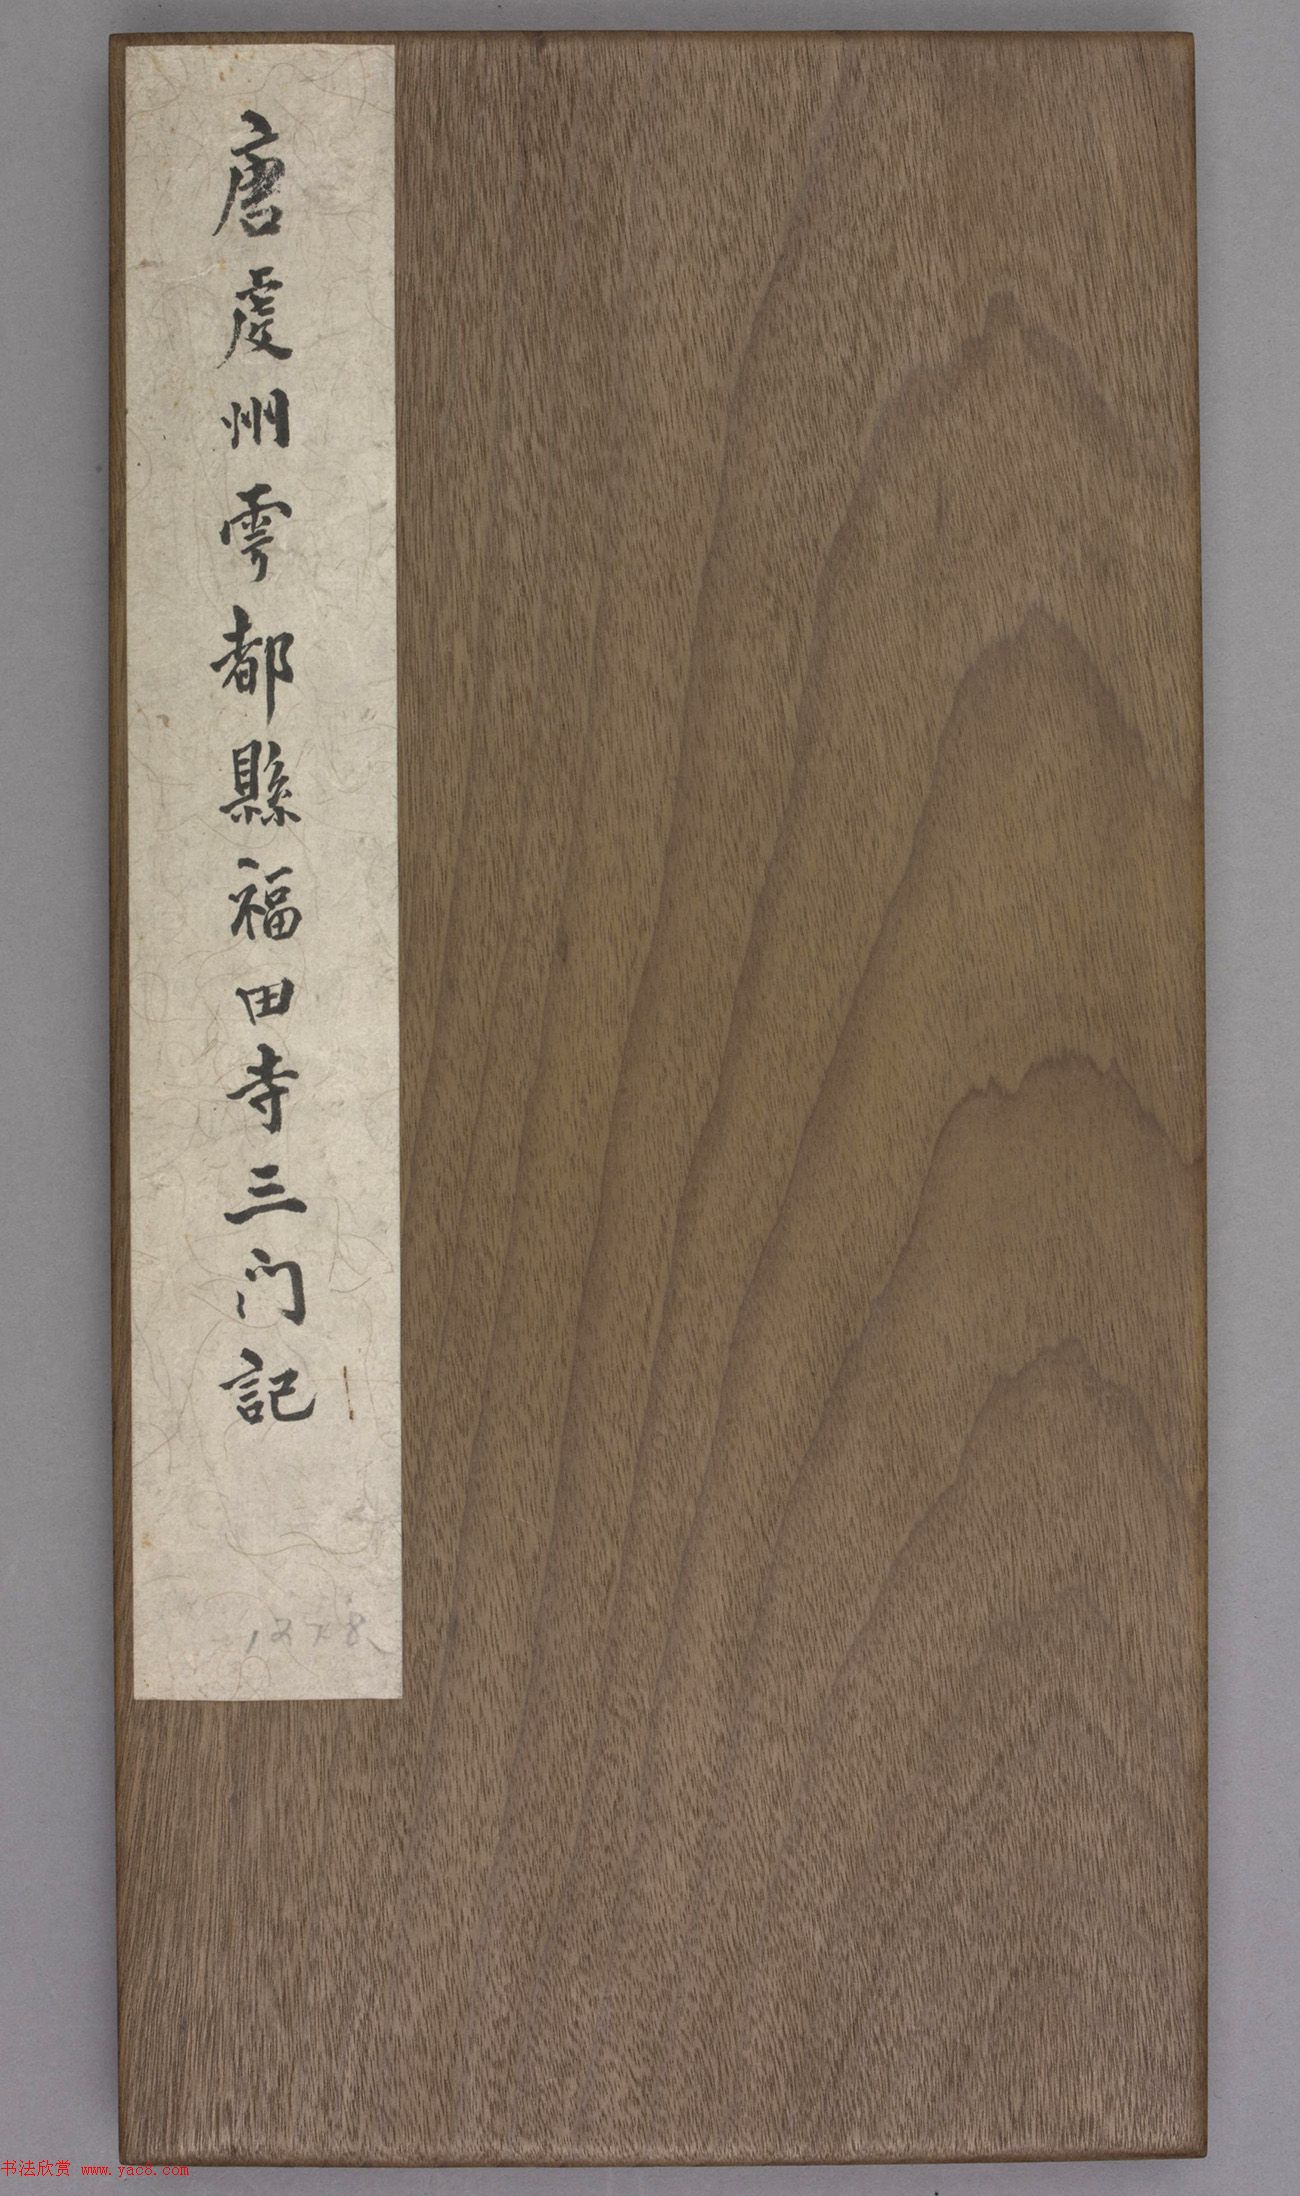 唐虔州雩都縣福田寺三门記
书法欣赏 www.yac8.com